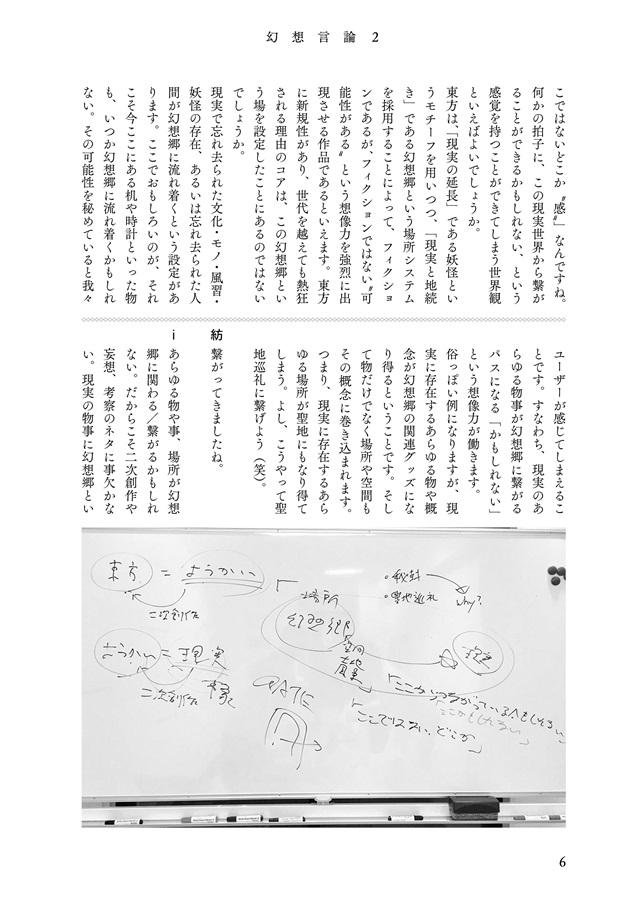 幻想言論 2
こではないどこか〝感〟なんですね。
何かの拍子に、この現実世界から繋が
ることができるかもしれない、という
感覚を持つことができてしまう世界観
といえばよいでしょうか。
東方は、「現実の延長」である妖怪とい
うモチーフを用いつつ、「現実と地続
き」である幻想郷という場所システム
を採用することによって、フィクショ
ンであるが、〝フィクションではない〟可
能性がある〟という想像力を強烈に出
現させる作品であるといえます。東方
に新規性があり、世代を越えても熱狂
される理由のコアは、この幻想郷とい
う場を設定したことにあるのではない
でしょうか。
現実で忘れ去られた文化・モノ・風習・
妖怪の存在、あるいは忘れ去られた人
間が幻想郷に流れ着くという設定があ
ります。ここでおもしろいのが、それ
こそ今ここにある机や時計といった物
も、いつか幻想郷に流れ着くかもしれ
ない。その可能性を秘めていると我々
ユーザーが感じてしまえるこ
とです。すなわち、現実のあ
らゆる物事が幻想郷に繋がる
パスになる「かもしれない」
という想像力が働きます。
俗っぽい例になりますが、現
実に存在するあらゆる物や概
念が幻想郷の関連グッズにな
り得るということです。そし
て物だけでなく場所や空間も
その概念に巻き込まれます。
つまり、現実に存在するあら
ゆる場所が聖地にもなり得て
しまう。よし、こうやって聖
地巡礼に繋げよう（笑）。
紡 繋がってきましたね。
i あらゆる物や事、場所が幻想
郷に関わる／繋がるかもしれ
ない。だからこそ二次創作や
妄想、考察のネタに事欠かな
い。現実の物事に幻想郷とい
東方 = ようかい
二次創作
ようかい = 現実
二次創作
場所
幻想郷
空間
・秘封
・聖地巡礼
why?
GATE
「ここではない、どこか」
6